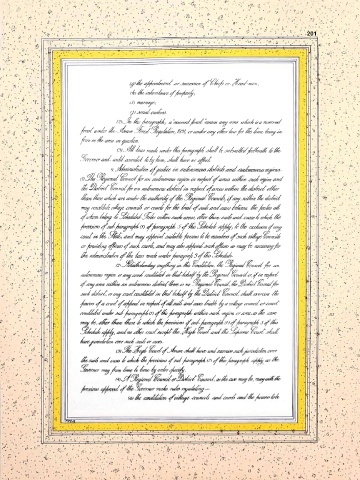 201
(g) the appointment or succession of Chiefs or Headmen;
(h) the inheritance of property;
(i) marriage;
(j) social customs.
(2) In this paragraph, a "reserved forest" means any area which is a reserved
forest under the Assam Forest Regulation, 1891, or under any other law for the time being in
force in the area in question.
(3) All laws made under this paragraph shall be submitted forthwith to the
Governor and, until assented to by him, shall have no effect.
4. Administration of justice in autonomous districts and autonomous regions.
(1) The Regional Council for an autonomous region in respect of areas within such region and
the District Council for an autonomous district in respect of areas within the district other
than those which are under the authority of the Regional Councils, if any, within the district
may constitute village councils or courts for the trial of suits and cases between the parties all
of whom belong to Scheduled Tribes within such areas, other than suits and cases to which the
provisions of sub-paragraph (1) of paragraph 5 of this Schedule apply, to the exclusion of any
court in the State, and may appoint suitable persons to be members of such village councils
or presiding officers of such courts, and may also appoint such officers as may be necessary for
the administration of the laws made under paragraph 3 of this Schedule.
(2) Notwithstanding anything in this Constitution, the Regional Council for an
autonomous region or any court constituted in that behalf by the Regional Council or, if in respect
of any area within an autonomous district there is no Regional Council, the District Council for
such district, or any court constituted in that behalf by the District Council, shall exercise the
powers of a court of appeal in respect of all suits and cases triable by a village council or court
constituted under sub-paragraph (1) of this paragraph within such region or area, as the case
may be, other than those to which the provisions of sub-paragraph (1) of paragraph 5 of this
Schedule apply, and no other court except the High Court and the Supreme Court shall
have jurisdiction over such suits or cases.
(3) The High Court of Assam shall have and exercise such jurisdiction over
the suits and cases to which the provisions of sub-paragraph (2) of this paragraph apply as the
Governor may from time to time by order specify.
(4) A Regional Council or District Council, as the case may be, may with the
previous approval of the Governor make rules regulating —
(a) the constitution of village councils and courts and the powers to be